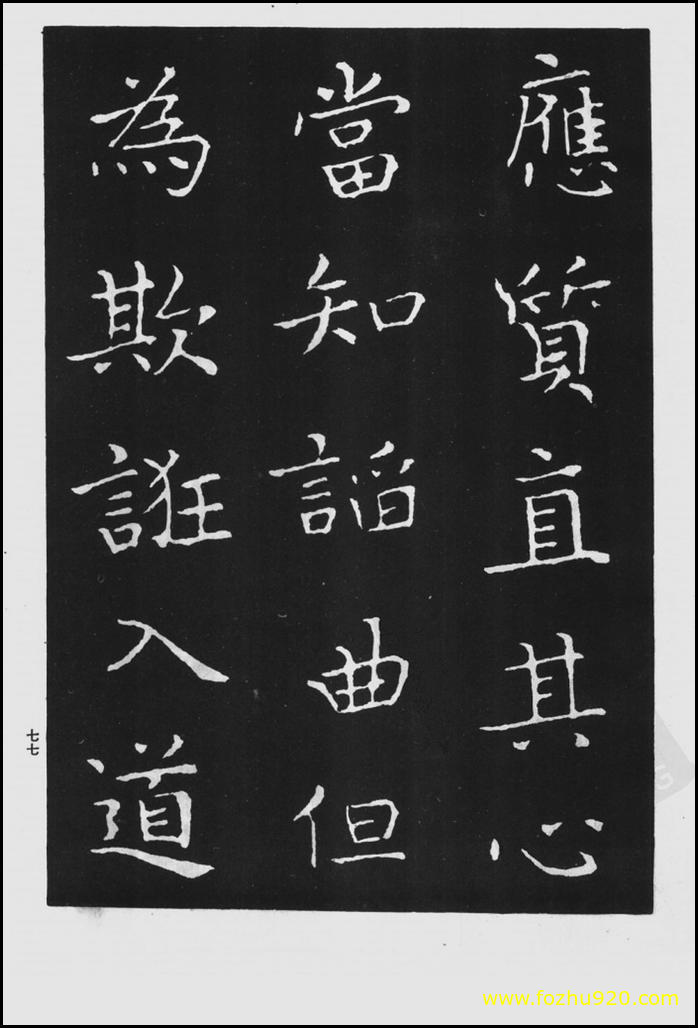 應質直其心
當知謟曲但
為欺誑入道
七七
www.fozhu920.com